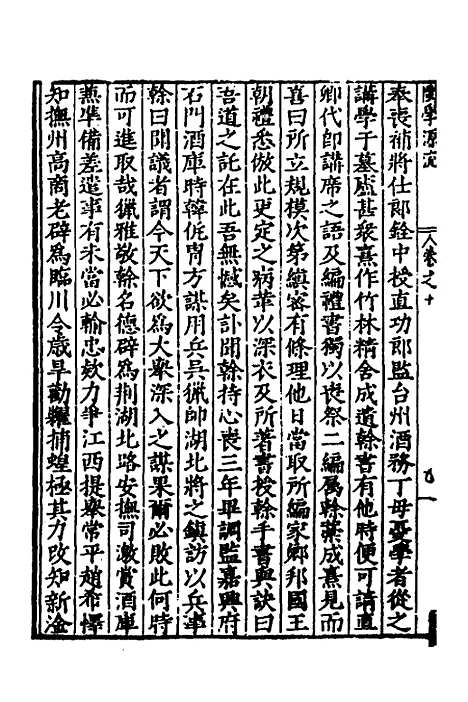 閩學源流 卷之十
奉喪補將仕郎銓中授直功郎監台州酒務丁母憂學者從之
講學于墓廬甚衆熹作竹林精舍成遺榦書有他時便可請直
卿代即講席之語及編禮書獨以喪祭二編屬榦藁成熹見而
喜曰所立規模次第縝密有條理他日當取所編家鄉邦國王
朝禮悉倣此更定之病革以深衣及所著書授榦手書與訣曰
吾道之託在此吾無憾矣訃聞榦持心喪三年畢調監嘉興府
石門酒庫時韓侂冑方謀用兵吳獵帥湖北將之鎮訪以兵事
榦曰聞議者謂今天下欲爲大舉深入之謀果爾必敗此何時
而可進取哉獵雅敬榦名德辟爲荆湖北路安撫司激賞酒庫
兼準備差遣事有未當必輸忠欵力爭江西提舉常平趙希懌
知撫州高商老辟爲臨川令歲旱勸糶捕蝗極其力改知新淦